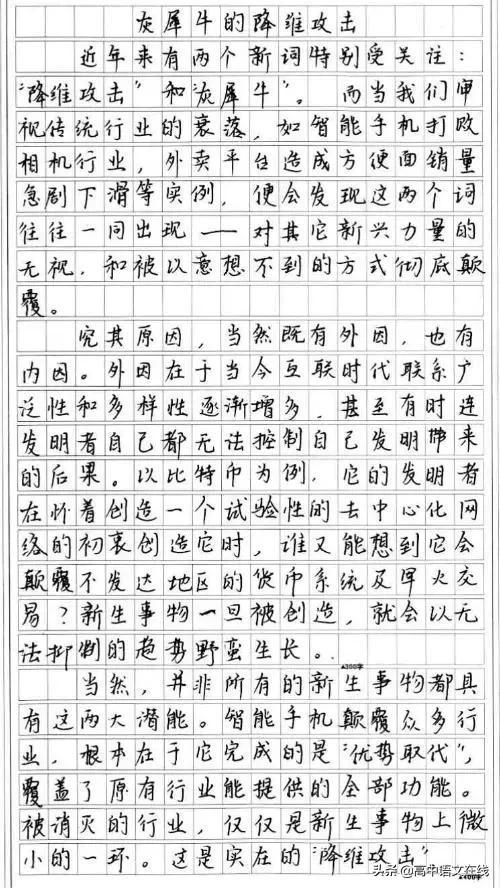 灰犀牛的降维攻击
近年来有两个新词特别受关注：
“降维攻击”和“灰犀牛”。而当我们审
视传统行业的衰落，如智能手机打败
相机行业，外卖平台造成方便面销量
急剧下滑等实例，便会发现这两个词
往往一同出现——对其它新兴力量的
无视，和被以意想不到的方式彻底颠
覆。
究其原因，当然既有外因，也有
内因。外因在于当今互联时代联系广
泛性和多样性逐渐增多，甚至有时连
发明者自己都无法控制自己发明带来
的后果。以比特币为例，它的发明者
在怀着创造一个试验性的去中心化网
络的初衷创造它时，谁又能想到它会
颠覆不发达地区的货币系统及军火交
易？新生事物一旦被创造，就会以无
法抑制的趋势野蛮生长。
▲300字
当然，并非所有的新生事物都具
有这两大潜能。智能手机颠覆众多行
业，根本在于它完成的是“优势取代”，
覆盖了原有行业能提供的全部功能。
被消灭的行业，仅仅是新生事物上微
小的一环。这是实在的“降维攻击”
▲400字
头条@高中语文在线